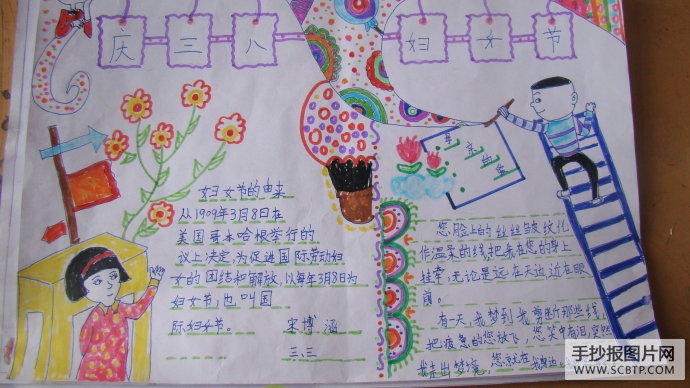 庆三八妇女节
妇女节的由来
从1909年3月8日在
美国哥本哈根举行的
议上决定,为促进国际劳动妇
女的团结和解放,以每年3月8日为
妇女节,也叫国
际妇女节。 宋博涵
三、三
母亲的爱
您脸上的丝丝皱纹化
作温柔的线,把我在您的身上
挂牵,无论是远在天边,近在眼
前。
有一天,我梦到我剪断那些线,
把疲惫的您放飞,您笑中有泪,突然
我走出梦境,您就在我身边
手抄报图片网
WWW.SCBTP.COM